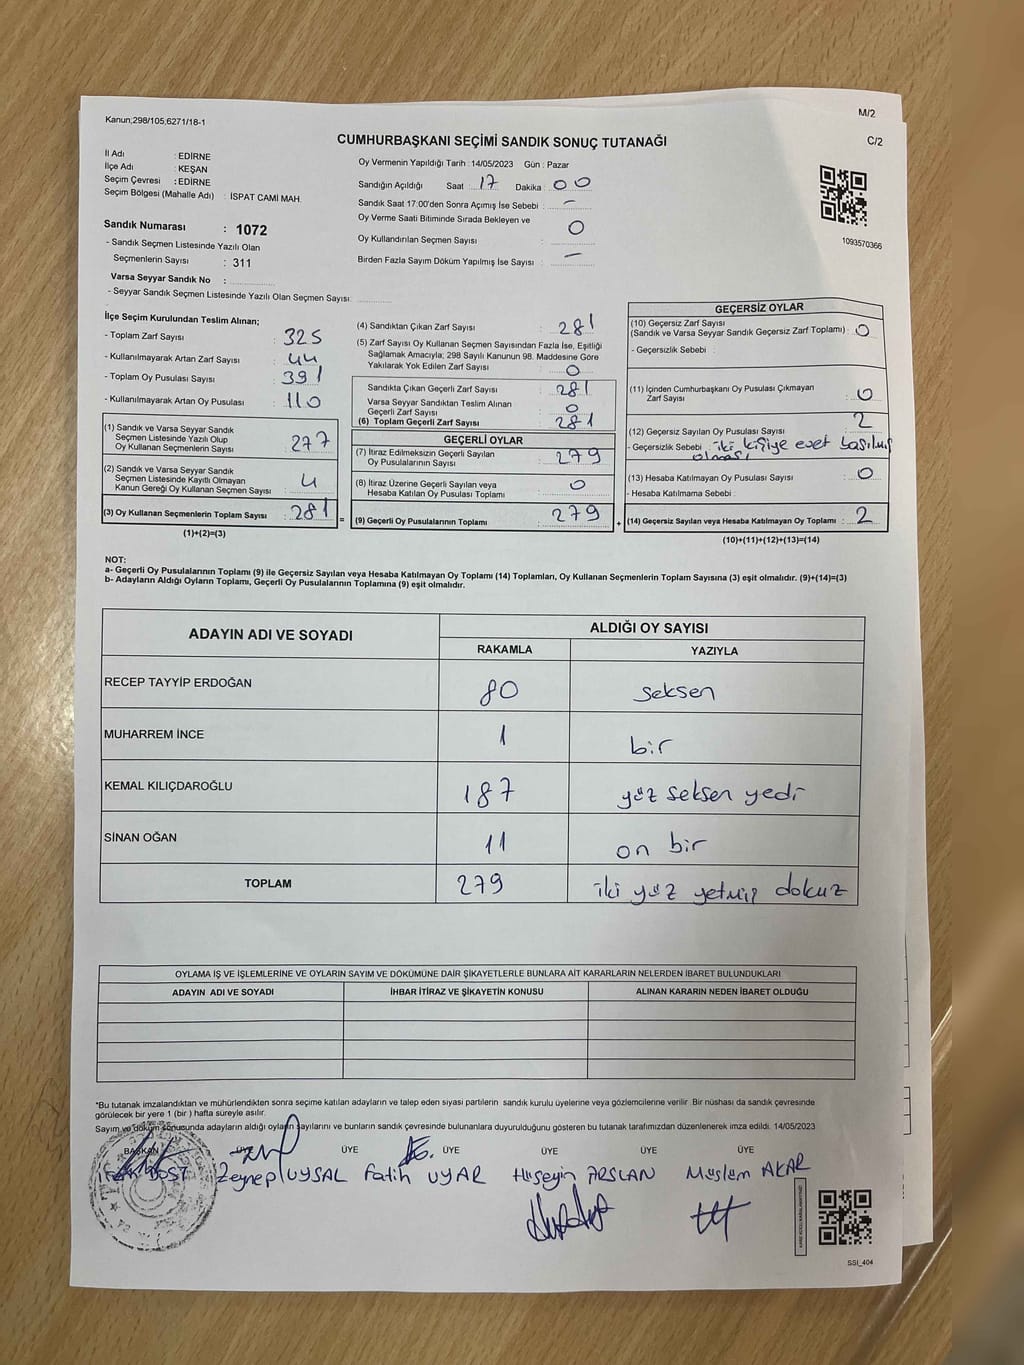 Kanun;298/105,6271/18-1
M/2
C/2
CUMHURBAŞKANI SEÇİMİ SANDIK SONUÇ TUTANAĞI
İl Adı : EDİRNE
İlçe Adı : KEŞAN
Seçim Çevresi : EDİRNE
Seçim Bölgesi (Mahalle Adı) : İSPAT CAMİ MAH.
Sandık Numarası : 1072
- Sandık Seçmen Listesinde Yazılı Olan
Seçmenlerin Sayısı : 311
Varsa Seyyar Sandık No :
- Seyyar Sandık Seçmen Listesinde Yazılı Olan Seçmen Sayısı:
Oy Vermenin Yapıldığı Tarih : 14/05/2023 Gün : Pazar
Sandığın Açıldığı Saat : 17 Dakika : 00
Sandık Saat 17:00'den Sonra Açımış İse Sebebi : -
Oy Verme Saati Bitiminde Sırada Bekleyen ve
Oy Kullandırılan Seçmen Sayısı : 0
Birden Fazla Sayım Döküm Yapılmış İse Sayısı : -
1093570366
İlçe Seçim Kurulundan Teslim Alınan;
- Toplam Zarf Sayısı : 325
- Kullanılmayarak Artan Zarf Sayısı : 44
- Toplam Oy Pusulası Sayısı : 391
- Kullanılmayarak Artan Oy Pusulası : 110
(1) Sandık ve Varsa Seyyar Sandık
Seçmen Listesinde Yazılı Olup
Oy Kullanan Seçmenlerin Sayısı : 277
(2) Sandık ve Varsa Seyyar Sandık
Seçmen Listesinde Kayıtlı Olmayan
Kanun Gereği Oy Kullanan Seçmen Sayısı : 4
(3) Oy Kullanan Seçmenlerin Toplam Sayısı : 281
(1)+(2)=(3)
(4) Sandıktan Çıkan Zarf Sayısı : 281
(5) Zarf Sayısı Oy Kullanan Seçmen Sayısından Fazla İse, Eşitliği
Sağlamak Amacıyla; 298 Sayılı Kanunun 98. Maddesine Göre
Yakılarak Yok Edilen Zarf Sayısı : 0
Sandıkta Çıkan Geçerli Zarf Sayısı : 281
Varsa Seyyar Sandıktan Teslim Alınan
Geçerli Zarf Sayısı : 0
(6) Toplam Geçerli Zarf Sayısı : 281
GEÇERLİ OYLAR
(7) İtiraz Edilmeksizin Geçerli Sayılan
Oy Pusulalarının Sayısı : 279
(8) İtiraz Üzerine Geçerli Sayılan veya
Hesaba Katılan Oy Pusulası Toplamı : 0
= (9) Geçerli Oy Pusulalarının Toplamı : 279
GEÇERSİZ OYLAR
(10) Geçersiz Zarf Sayısı
(Sandık ve Varsa Seyyar Sandık Geçersiz Zarf Toplamı) : 0
- Geçersizlik Sebebi :
(11) İçinden Cumhurbaşkanı Oy Pusulası Çıkmayan
Zarf Sayısı : 0
(12) Geçersiz Sayılan Oy Pusulası Sayısı : 2
- Geçersizlik Sebebi : iki kişiye evet basılmış
olması
(13) Hesaba Katılmayan Oy Pusulası Sayısı : 0
- Hesaba Katılmama Sebebi :
+ (14) Geçersiz Sayılan veya Hesaba Katılmayan Oy Toplamı : 2
(10)+(11)+(12)+(13)=(14)
NOT:
a- Geçerli Oy Pusulalarının Toplamı (9) ile Geçersiz Sayılan veya Hesaba Katılmayan Oy Toplamı (14) Toplamları, Oy Kullanan Seçmenlerin Toplam Sayısına (3) eşit olmalıdır. (9)+(14)=(3)
b- Adayların Aldığı Oyların Toplamı, Geçerli Oy Pusulalarının Toplamına (9) eşit olmalıdır.
ADAYIN ADI VE SOYADI
ALDIĞI OY SAYISI
RAKAMLA YAZIYLA
RECEP TAYYİP ERDOĞAN 80 seksen
MUHARREM İNCE 1 bir
KEMAL KILIÇDAROĞLU 187 yüz seksen yedi
SİNAN OĞAN 11 on bir
TOPLAM 279 iki yüz yetmiş dokuz
OYLAMA İŞ VE İŞLEMLERİNE VE OYLARIN SAYIM VE DÖKÜMÜNE DAİR ŞİKAYETLERLE BUNLARA AİT KARARLARIN NELERDEN İBARET BULUNDUKLARI
ADAYIN ADI VE SOYADI İHBAR İTİRAZ VE ŞİKAYETİN KONUSU ALINAN KARARIN NEDEN İBARET OLDUĞU
*Bu tutanak imzalandıktan ve mühürlendikten sonra seçime katılan adayların ve talep eden siyasi partilerin sandık kurulu üyelerine veya gözlemcilerine verilir. Bir nüshası da sandık çevresinde
görülecek bir yere 1 (bir ) hafta süreyle asılır.
Sayım ve döküm sonusunda adayların aldığı oyların sayılarını ve bunların sandık çevresinde bulunanlara duyurulduğunu gösteren bu tutanak tarafımızdan düzenlenerek imza edildi. 14/05/2023
BAŞKAN ÜYE ÜYE ÜYE ÜYE ÜYE
Zeynep UYSAL Fatih UYAR Hüseyin ARSLAN Müslüm AKAR
SSI_404